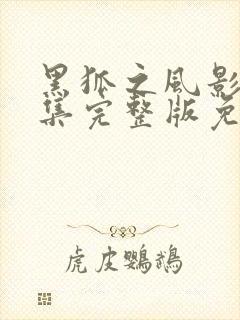 黑狐之风影
集完整版免
虎皮鹦鹉